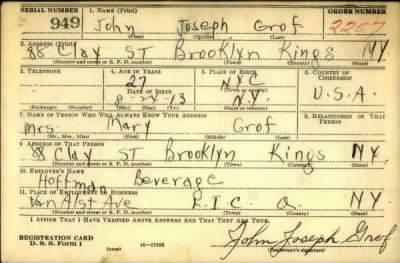 SERIAL NUMBER 1. NAME (Print) ORDER NUMBER
949 John Joseph Grof 2257
2. ADDRESS (Print)
88 Clay ST Brooklyn Kings NY.
(Number and street or R. F. D. number) (Town) (County) (State)
3. TELEPHONE 4. AGE IN YEARS 5. PLACE OF BIRTH 6. COUNTRY OF CITIZENSHIP
27 NYC
DATE OF BIRTH
N.Y. U.S.A.
(Exchange) (Number) (Mo.) (Day) (Yr.) (State or country)
7. NAME OF PERSON WHO WILL ALWAYS KNOW YOUR ADDRESS 8. RELATIONSHIP OF THAT PERSON
Mrs. Mary Grof
(Mr., Mrs., Miss) (First) (Middle) (Last)
9. ADDRESS OF THAT PERSON
88 Clay ST Brooklyn Kings NY.
(Number and street or R. F. D. number) (Town) (County) (State)
10. EMPLOYER'S NAME
Hoffman Beverage
11. PLACE OF EMPLOYMENT OR BUSINESS
Van Alst Ave L.I.C. Q. NY.
(Number and street or R. F. D. number) (Town) (County) (State)
I AFFIRM THAT I HAVE VERIFIED ABOVE ANSWERS AND THAT THEY ARE TRUE.
REGISTRATION CARD
D. S. S. Form 1 (over) 16—17105 John Joseph Grof